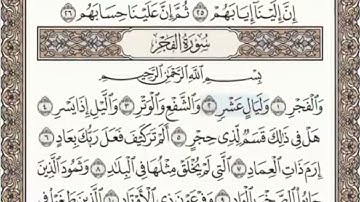 إِنَّ إِلَيْنَا إِيَابَهُمْ ٢٥ ثُمَّ إِنَّ عَلَيْنَا حِسَابَهُم ٢٦
سُورَةُ الفَجْرِ
بِسْمِ اللَّهِ الرَّحْمَٰنِ الرَّحِيمِ
وَالْفَجْرِ ١ وَلَيَالٍ عَشْرٍ ٢ وَالشَّفْعِ وَالْوَتْرِ ٣ وَاللَّيْلِ إِذَا يَسْرِ ٤
هَلْ فِي ذَٰلِكَ قَسَمٌ لِّذِي حِجْرٍ ٥ أَلَمْ تَرَ كَيْفَ فَعَلَ رَبُّكَ بِعَادٍ ٦
إِرَمَ ذَاتِ الْعِمَادِ ٧ الَّتِي لَمْ يُخْلَقْ مِثْلُهَا فِي الْبِلَادِ ٨ وَثَمُودَ الَّذِينَ
جَابُوا الصَّخْرَ بِالْوَادِ ٩ وَفِرْعَوْنَ ذِي الْأَوْتَادِ ١٠ الَّذِينَ طَغَوْا فِي